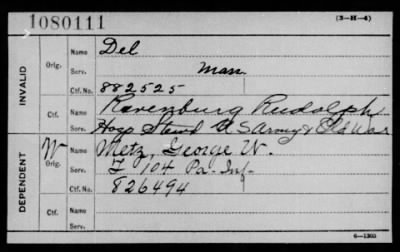 1080111
(3-H-4)
INVALID
Orig.
Name Del
Serv. Man.
Ctf. No. 882525
Ctf.
Name Ravenburg Rudolph
Serv. Hosp Stewd U S Army & Old War
DEPENDENT
W
Orig.
Name Metz, George W.
Serv. F 104 Pa. Inf.
Ctf. No. 826494
Ctf.
Name
Serv.
6-1303